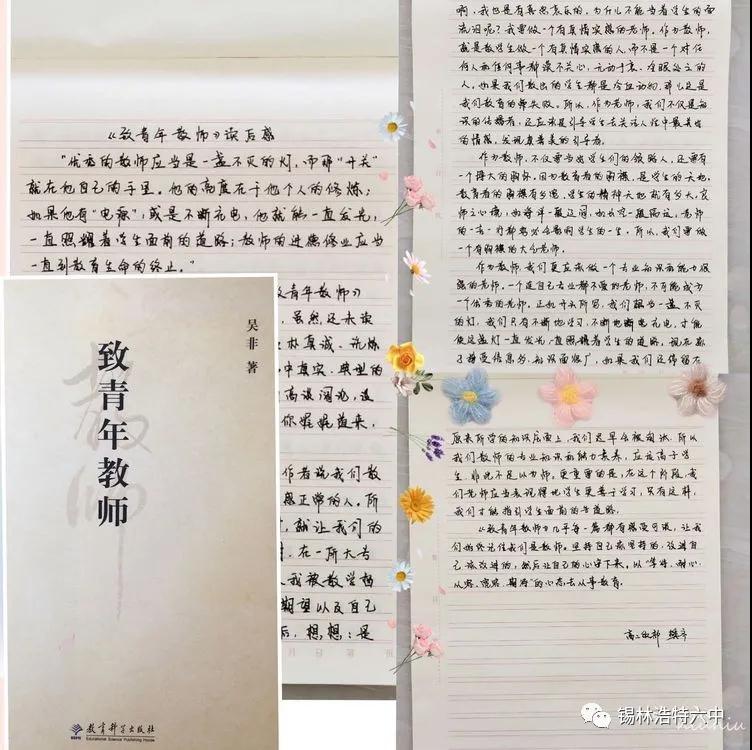 《致青年教师》读后感
“优秀的教师应当是一盏不灭的灯,而那“开关”
就在他自己的手里。他的高度在于他个人的修炼;
如果他有“电源”,或是不断充电,他就能一直发光,
一直照耀着学生面前的道路;教师的进德修业应当
一直到教育生命的终止。”
致青年教师》
,虽然还未读
朴真诚、洗炼
中真实、典型的
高谈阔论,没
你娓娓道来,
作者说我们教
思正常的人。所
,就让我们的
,在一所大专
我被教学
期望以及自己
后,想想:是
吴非 著
致青年教师
教师
教育科学出版社
Educational Science Publishing House
啊,我也是有喜怒哀乐的,为什么不能当着学生的面
流泪呢?我要做一个有真情实感的老师。作为教师,
就是教学生做一个有真情实感的人,而不是一个对任
何人和任何事都漠不关心,无动于衷、冷眼处之的
人。如果我们教出的学生都是冷血动物,那么这是
我们教育的师失败。所以,作为老师,我们不仅是知
识的传播者,还应该是引导学生去关注人性中最美好
的情感,发现真善美的引导者。
作为教师,不仅要当出学生们的领路人,还要有
一个博大的胸怀。因为教育者的胸襟,是学生的天地,
教育者的胸襟有多宽,学生的精神天地就有多大,良
师之心境,如海洋一般辽阔,如长空一般高远,老师
的一言一行都将会影响学生的一生,所以,我们要做
一个有胸襟的大气老师。
作为教师,我们更应该做一个专业知识和能力很
强的老师。一个连自己专业都不爱的老师,不可能成为
一个优秀的老师。正如开头所写,我们作为一盏不灭
的灯,我们只有不断地学习,不断地断地充电,才能
使这盏灯一直发光,一直照耀着学生的道路,现在孩
子接受信息多,知识面较广,如果我们还停留在
原来所学的知识层面上,我们迟早会被淘汰。所以
我们教师的专业知识和能力素养,应远高于学
生,非此不足以为师。更重要的是,在这个阶段,我
们老师应当表现得比学生更善于学习,只有这样,
我们才能指引学生面前的道路。
《致青年教师》几乎每一篇都有感受可谈,让我
们始终记住我们是教师。坚持自己该坚持的,改进自
己该改进的,然后让自己的心安下来。以“等待、耐心、
从容、宽容、期待”的心态去从事教育。
高二级部
锡林浩特六中